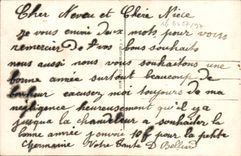 Cher Neveu et Chère Nièce
Je vous envoie deux mots pour vous
remercier de vos bons souhaits
nous aussi nous vous souhaitons une
bonne année surtout beaucoup de
bonheur excusez moi toujours de ma
négligence heureusement qu'il y a
jusqua la chandeleur a souhaiter la
bonne année j'envoie 10f pour la petite
Germaine Votre tante D